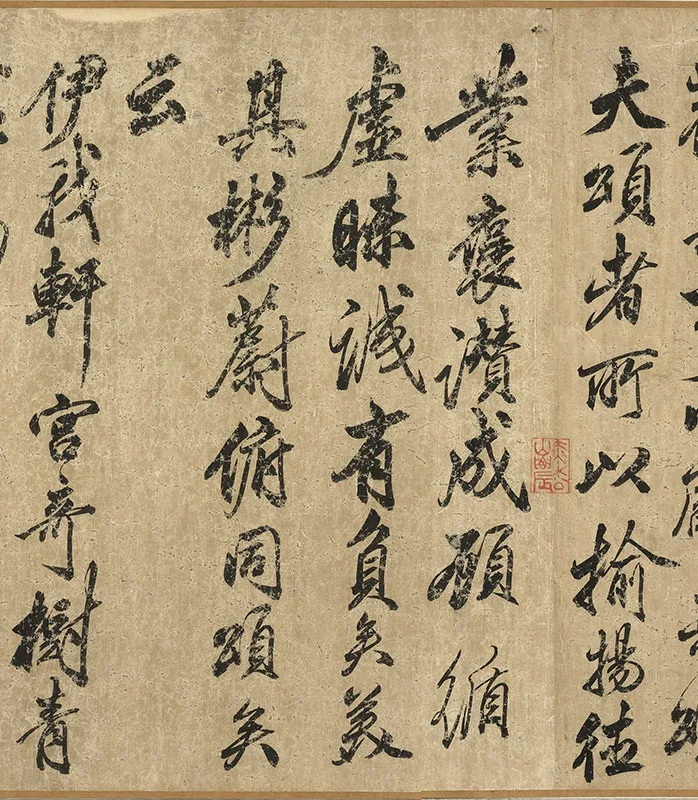 夫頌者所以揄揚德
業褒讚成顧循
虛昧誠有負矣美
其彬蔚俯同頌矣
云
伊我軒宮奇樹青